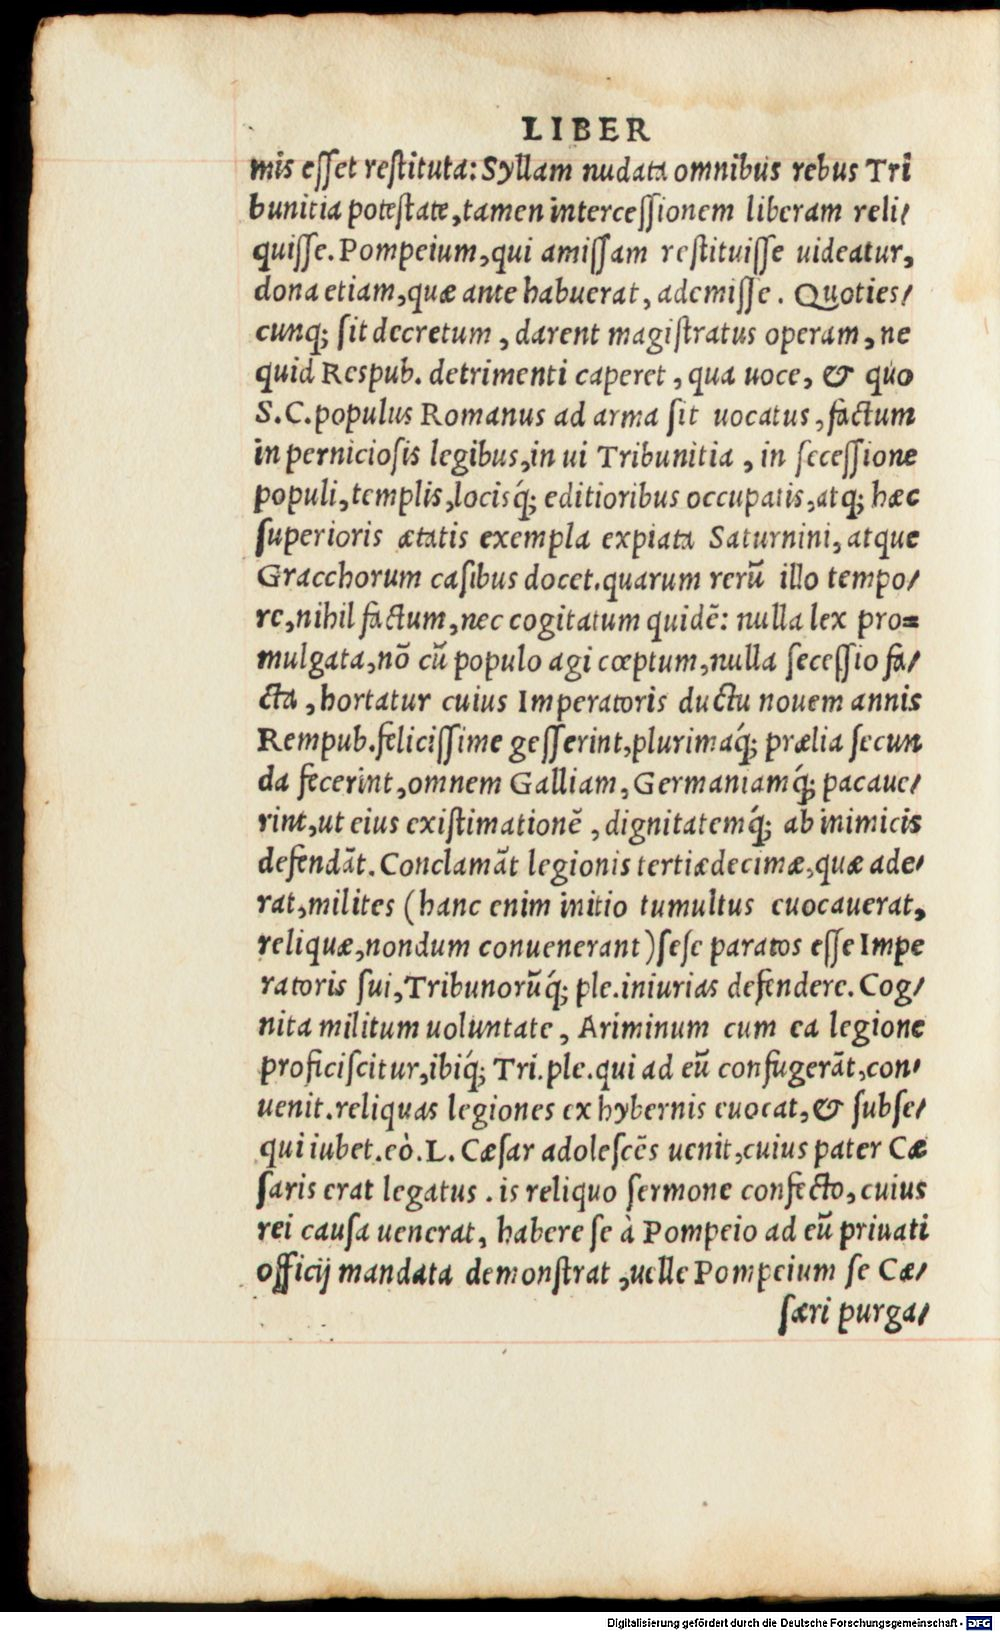 LIBER
mis esset restituta: Syllam nudata omnibus rebus Tri
bunitia potestate, tamen intercessionem liberam reli/
quisse. Pompeium, qui amissam restituisse uideatur,
dona etiam, quæ ante habuerat, ademisse. Quoties/
cunq; sit decretum, darent magistratus operam, ne
quid Respub. detrimenti caperet, qua uoce, & quo
S.C. populus Romanus ad arma sit uocatus, factum
in perniciosis legibus, in ui Tribunitia, in secessione
populi, templis, locisq́; editioribus occupatis, atq; hæc
superioris ætatis exempla expiata Saturnini, atque
Gracchorum casibus docet. quarum rerũ illo tempo/
re, nihil factum, nec cogitatum quidẽ: nulla lex pro=
mulgata, nõ cũ populo agi cœptum, nulla secessio fa/
cta, hortatur cuius Imperatoris ductu nouem annis
Rempub. felicissime gesserint, plurimaq́; prælia secun
da fecerint, omnem Galliam, Germaniamq́; pacaue/
rint, ut eius existimationẽ, dignitatemq́; ab inimicis
defendãt. Conclamãt legionis tertiædecimæ, quæ ade/
rat, milites (hanc enim initio tumultus euocauerat,
reliquæ, nondum conuenerant) sese paratos esse Impe
ratoris sui, Tribunorũq́; ple. iniurias defendere. Cog/
nita militum uoluntate, Ariminum cum ea legione
proficiscitur, ibiq́; Tri. ple. qui ad eũ confugerãt, con/
uenit. reliquas legiones ex hybernis euocat, & subse/
qui iubet. eò. L. Cæsar adolescẽs uenit, cuius pater Cæ
saris erat legatus. is reliquo sermone confecto, cuius
rei causa uenerat, habere se à Pompeio ad eũ priuati
officij mandata demonstrat, uelle Pompeium se Cæ/
særi purga/
Digitalisierung gefördert durch die Deutsche Forschungsgemeinschaft - DFG